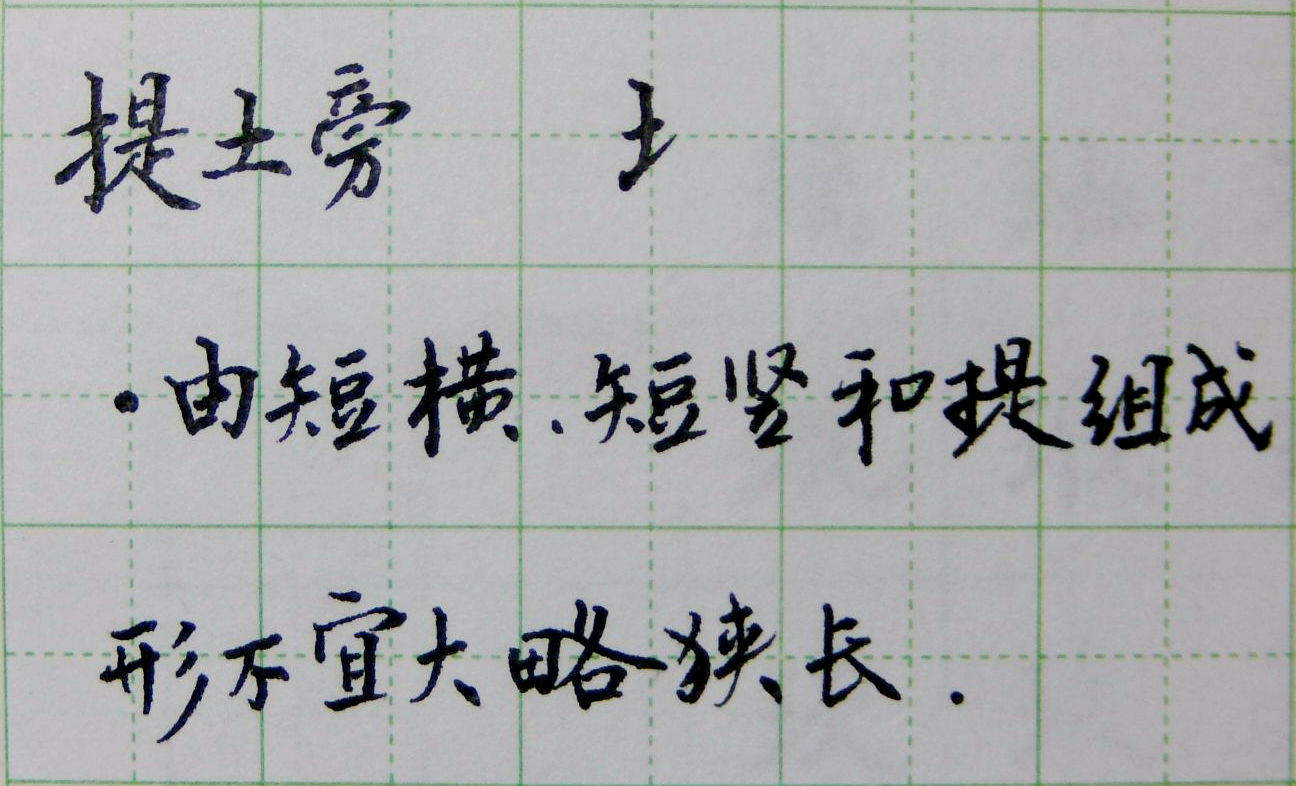 提土旁 土
·由短横、短竖和提组成
形不宜大略狭长.